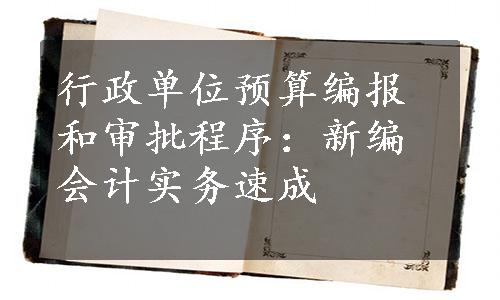 行政单位预算编报
和审批程序：新编
会计实务速成